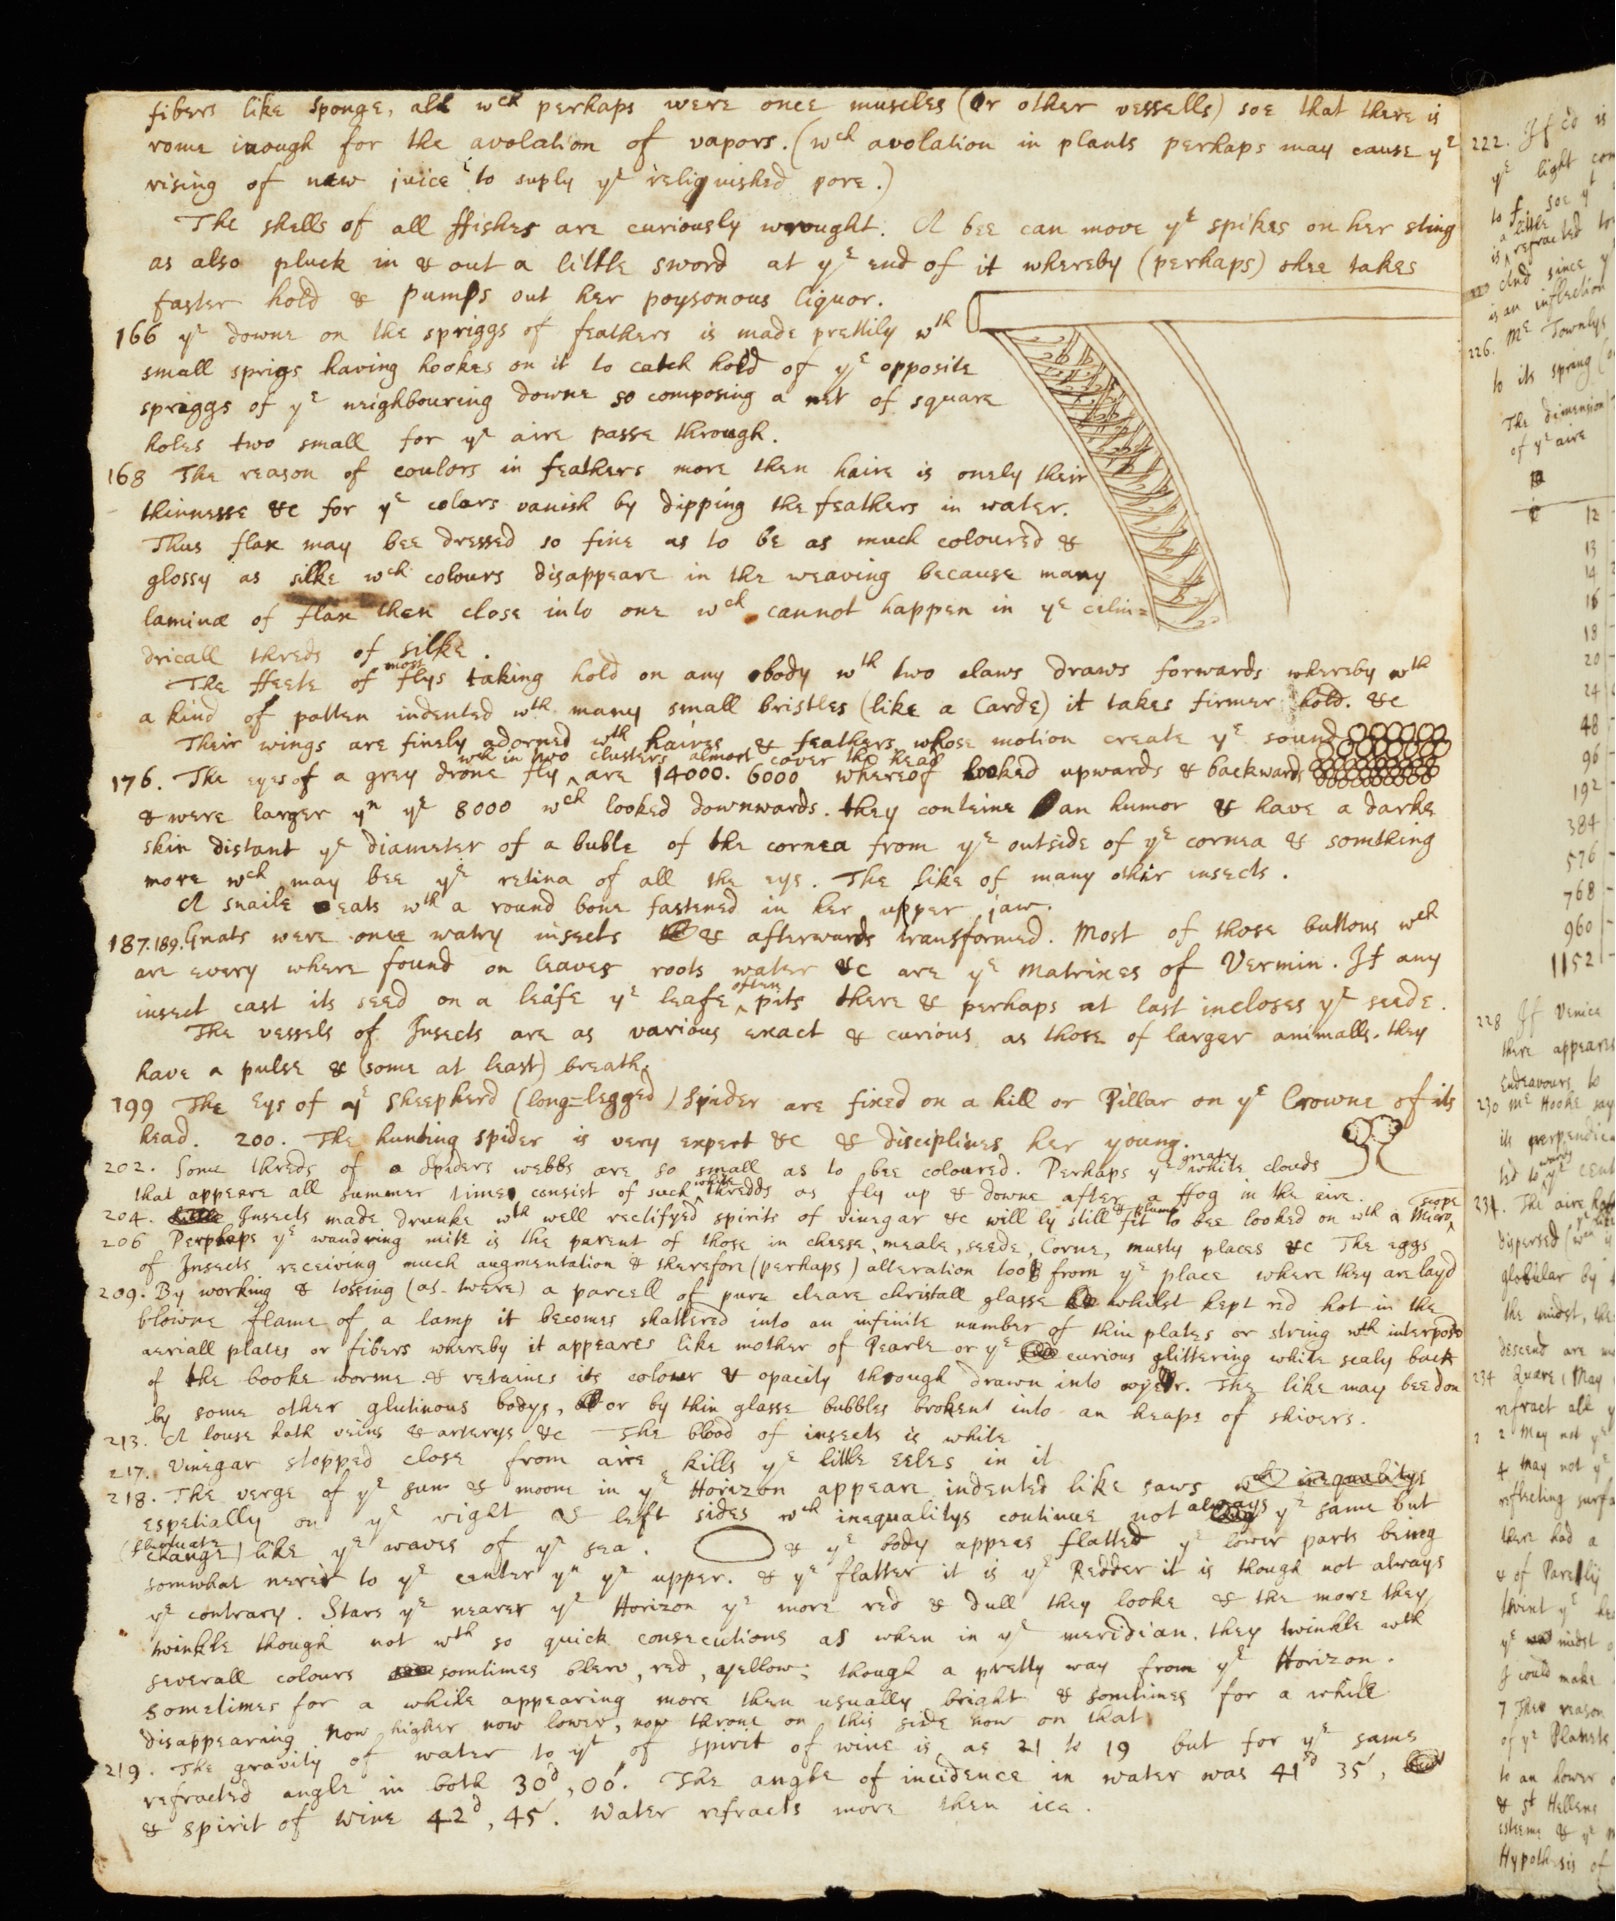 fibers like sponge, all wch perhaps were once muscles (or other vessells) soe that there is
rome inough for the avolation of vapors. (wch avolation in plants perhaps may cause ye
rising of new juice to suply ye relinquished pore.)
The shells of all ffishes are curiously wrought. A bee can move ye spikes on her sting
as also pluck in & out a little sword at ye end of it whereby (perhaps) shee takes
faster hold & pumps out her poysonous liquor.
166 ye downe on the spriggs of feathers is made prettily wth
small sprigs having hookes on it to catch hold of ye opposite
spriggs of ye neighbouring downe so composing a net of square
holes two small for ye aire passe through.
168 The reason of coulors in feathers more then haire is onely their
thinnesse &c for ye colors vanish by dipping the feathers in water.
Thus flax may bee dressed so fine as to be as much coloured &
glossy as silke wch colours disappeare in the weaving because many
laminæ of flax then close into one wch cannot happen in ye celin=
dricall threds of silke.
The ffeete of most flys taking hold on any body wth two claws draws forwards whereby wth
a kind of patten indented wth many small bristles (like a Carde) it takes firmer hold. &c
Their wings are finely adorned wth haires & feathers whose motion create ye sound
wch in two clusters almost cover the head
176. The eyes of a grey drone fly are 14000. 6000 whereof looked upwards & backwards
& were larger yn ye 8000 wch looked downwards. they conteine an humor & have a darke
skin distant ye diameter of a buble of the cornea from ye outside of ye cornea & somthing
more wch may bee ye retina of all the eye. The like of many other insects.
A snaile eats wth a round bone fastened in her upper jaw.
187.189. Gnats were once watry insects & afterwards transformed. Most of those buttons wch
are every where found on leaves roots water &c are ye matrixes of Vermin. If any
insect cast its seed on a leafe ye leafe often pits there & perhaps at last incloses ye seede.
The vessels of Insects are as various exact & curious as those of larger animalls. they
have a pulse & (some at least) breath.
199 The Eys of ye sheepherd (long=legged) spider are fixed on a hill or Pillar on ye Crowne of its
head. 200. The hunting spider is very expert &c & disciplines her young.
202. Some threds of a spiders webbs are so small as to bee coloured. Perhaps ye greate white clouds
that appeare all summer time consist of such white thredds as fly up & downe after a ffog in the aire.
204. Insects made drunke wth well rectifyed spirits of vinegar &c will ly still & plump fit to bee looked on wth a Microscope
206 Perphaps ye wandring mite is the parent of those in cheese, meale, seede, Corne, musty places &c The eggs
of Insects receiving much augmentation & therefore (perhaps) alteration too from ye place where they are layd
209. By working & tossing (as twere) a parcell of pure cleare christall glasse whilst kept red hot in the
blowne flame of a lamp it becomes shattered into an infinite number of thin plates or string wth interposd
aeriall plates or fibers whereby it appeares like mother of Pearle or ye curious glittering white scaly back
of the booke worme & retaines its colour & opacity though drawn into wyer. The like may bee don
by some other glutinous bodys, or by thin glasse bubbles brokent into an heape of shivers.
213. A louse hath veins & arterys &c The blood of insects is white
217. Vinegar stopped close from aire kills ye little eeles in it
218. The verge of ye sun & moone in ye Horizon appeare indented like saws wch inequalitys
espetially on ye right & left sides wch inequalitys continue not always ye same but
(fluctuate change) like ye waves of ye sea. & ye body appeas flatted ye lower parts being
somwhat nerer to ye center yn ye upper. & ye flatter it is ye Redder it is though not always
ye contrary. Stars ye nearer ye Horizon ye more red & dull they looke & the more they
twinkle though not wth so quick consecutions as when in ye meridian. they twinkle wth
severall colours somtimes blew, red, yellow; though a pretty way from ye Horizon.
sometimes for a while appearing more then usually bright & somtimes for a while
disappearing now higher now lower, now throne on this side now on that
219. The gravity of water to yt of spirit of wine is as 21 to 19 but for ye same
refracted angle in both 30d, 00'. The angle of incidence in water was 41d 35',
& spirit of wine 42d, 45'. Water refracts more then ice.
222. If cd is
ye light
to f. soe yt
a little
is refracted
And since
is an inflection
226. Mr Townlys
to its spring
The dimension
of ye aire
12
13
14
16
18
20
24
48
96
192
384
576
768
960
1152
228 If Venice
there appeares
Endeavours to
230 Mr Hooke say
its perpendic
ted
234. The aire
dispersed
globular by
the midst, the
descend are
234 Quære, May
refract all
2 May not ye
4 May not ye
reflecting surfa
there had a
& of
ye midst
I could make
7 The reason
of ye Planets
to an hower
& St Hellens
esteeme & ye
Hypothesis of